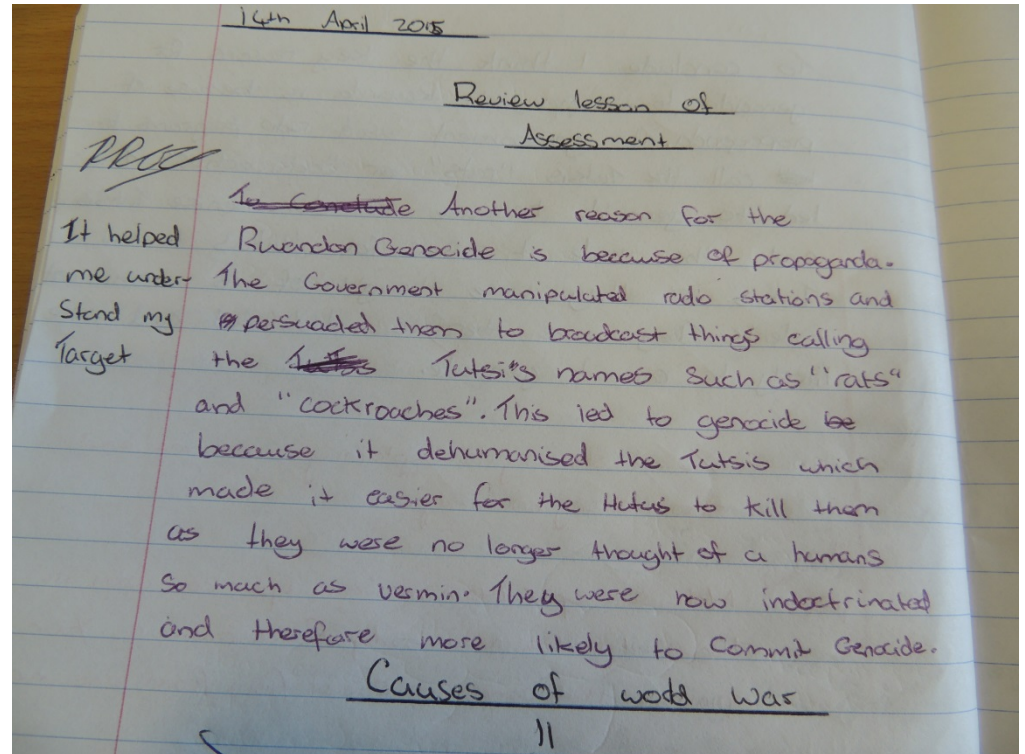 14th April 2015
Review lesson of
Assessment
PROG
It helped
me under-
stand my
Target
To Conclude Another reason for the
Rwandan Genocide is because of propaganda.
The Government manipulated radio stations and
persuaded them to broadcast things calling
the Tutsi's names such as "rats"
and "cockroaches". This led to genocide be
because it dehumanised the Tutsis which
made it easier for the Hutus to kill them
as they were no longer thought of a humans
so much as vermin. They were now indoctrinated
and therefore more likely to Commit Genocide.
Causes of world war
II